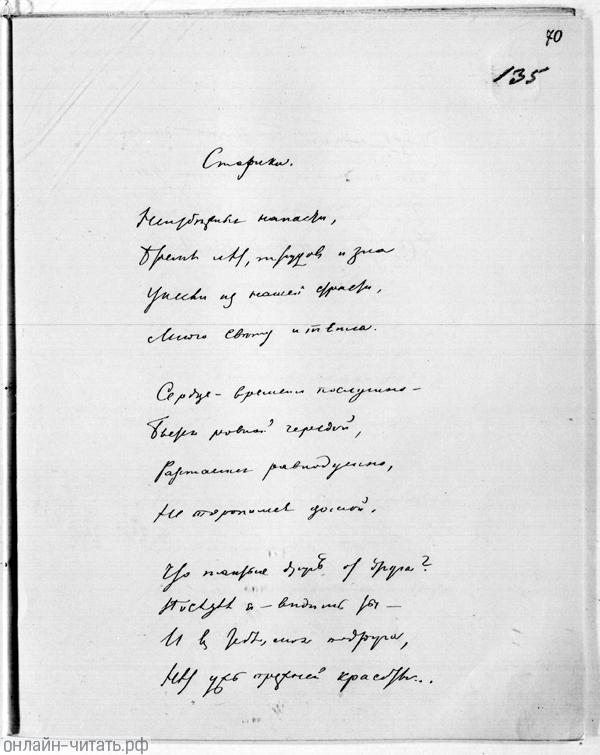 70
135
Старики.
Неизбѣжныя напасти,
Бремя лѣт, трудов и зла
Унесли из нашей страсти,
Много свѣту и тепла.
Сердце – времени послушно –
Бьется ровной чередой,
Разстаемся равнодушно,
Не торопимся домой.
Что таиться другъ от друга?
Посѣдѣл я – видишь ты –
И в тебѣ, моя подруга,
Нѣт ужъ прежней красоты...
онлайн-читать.рф